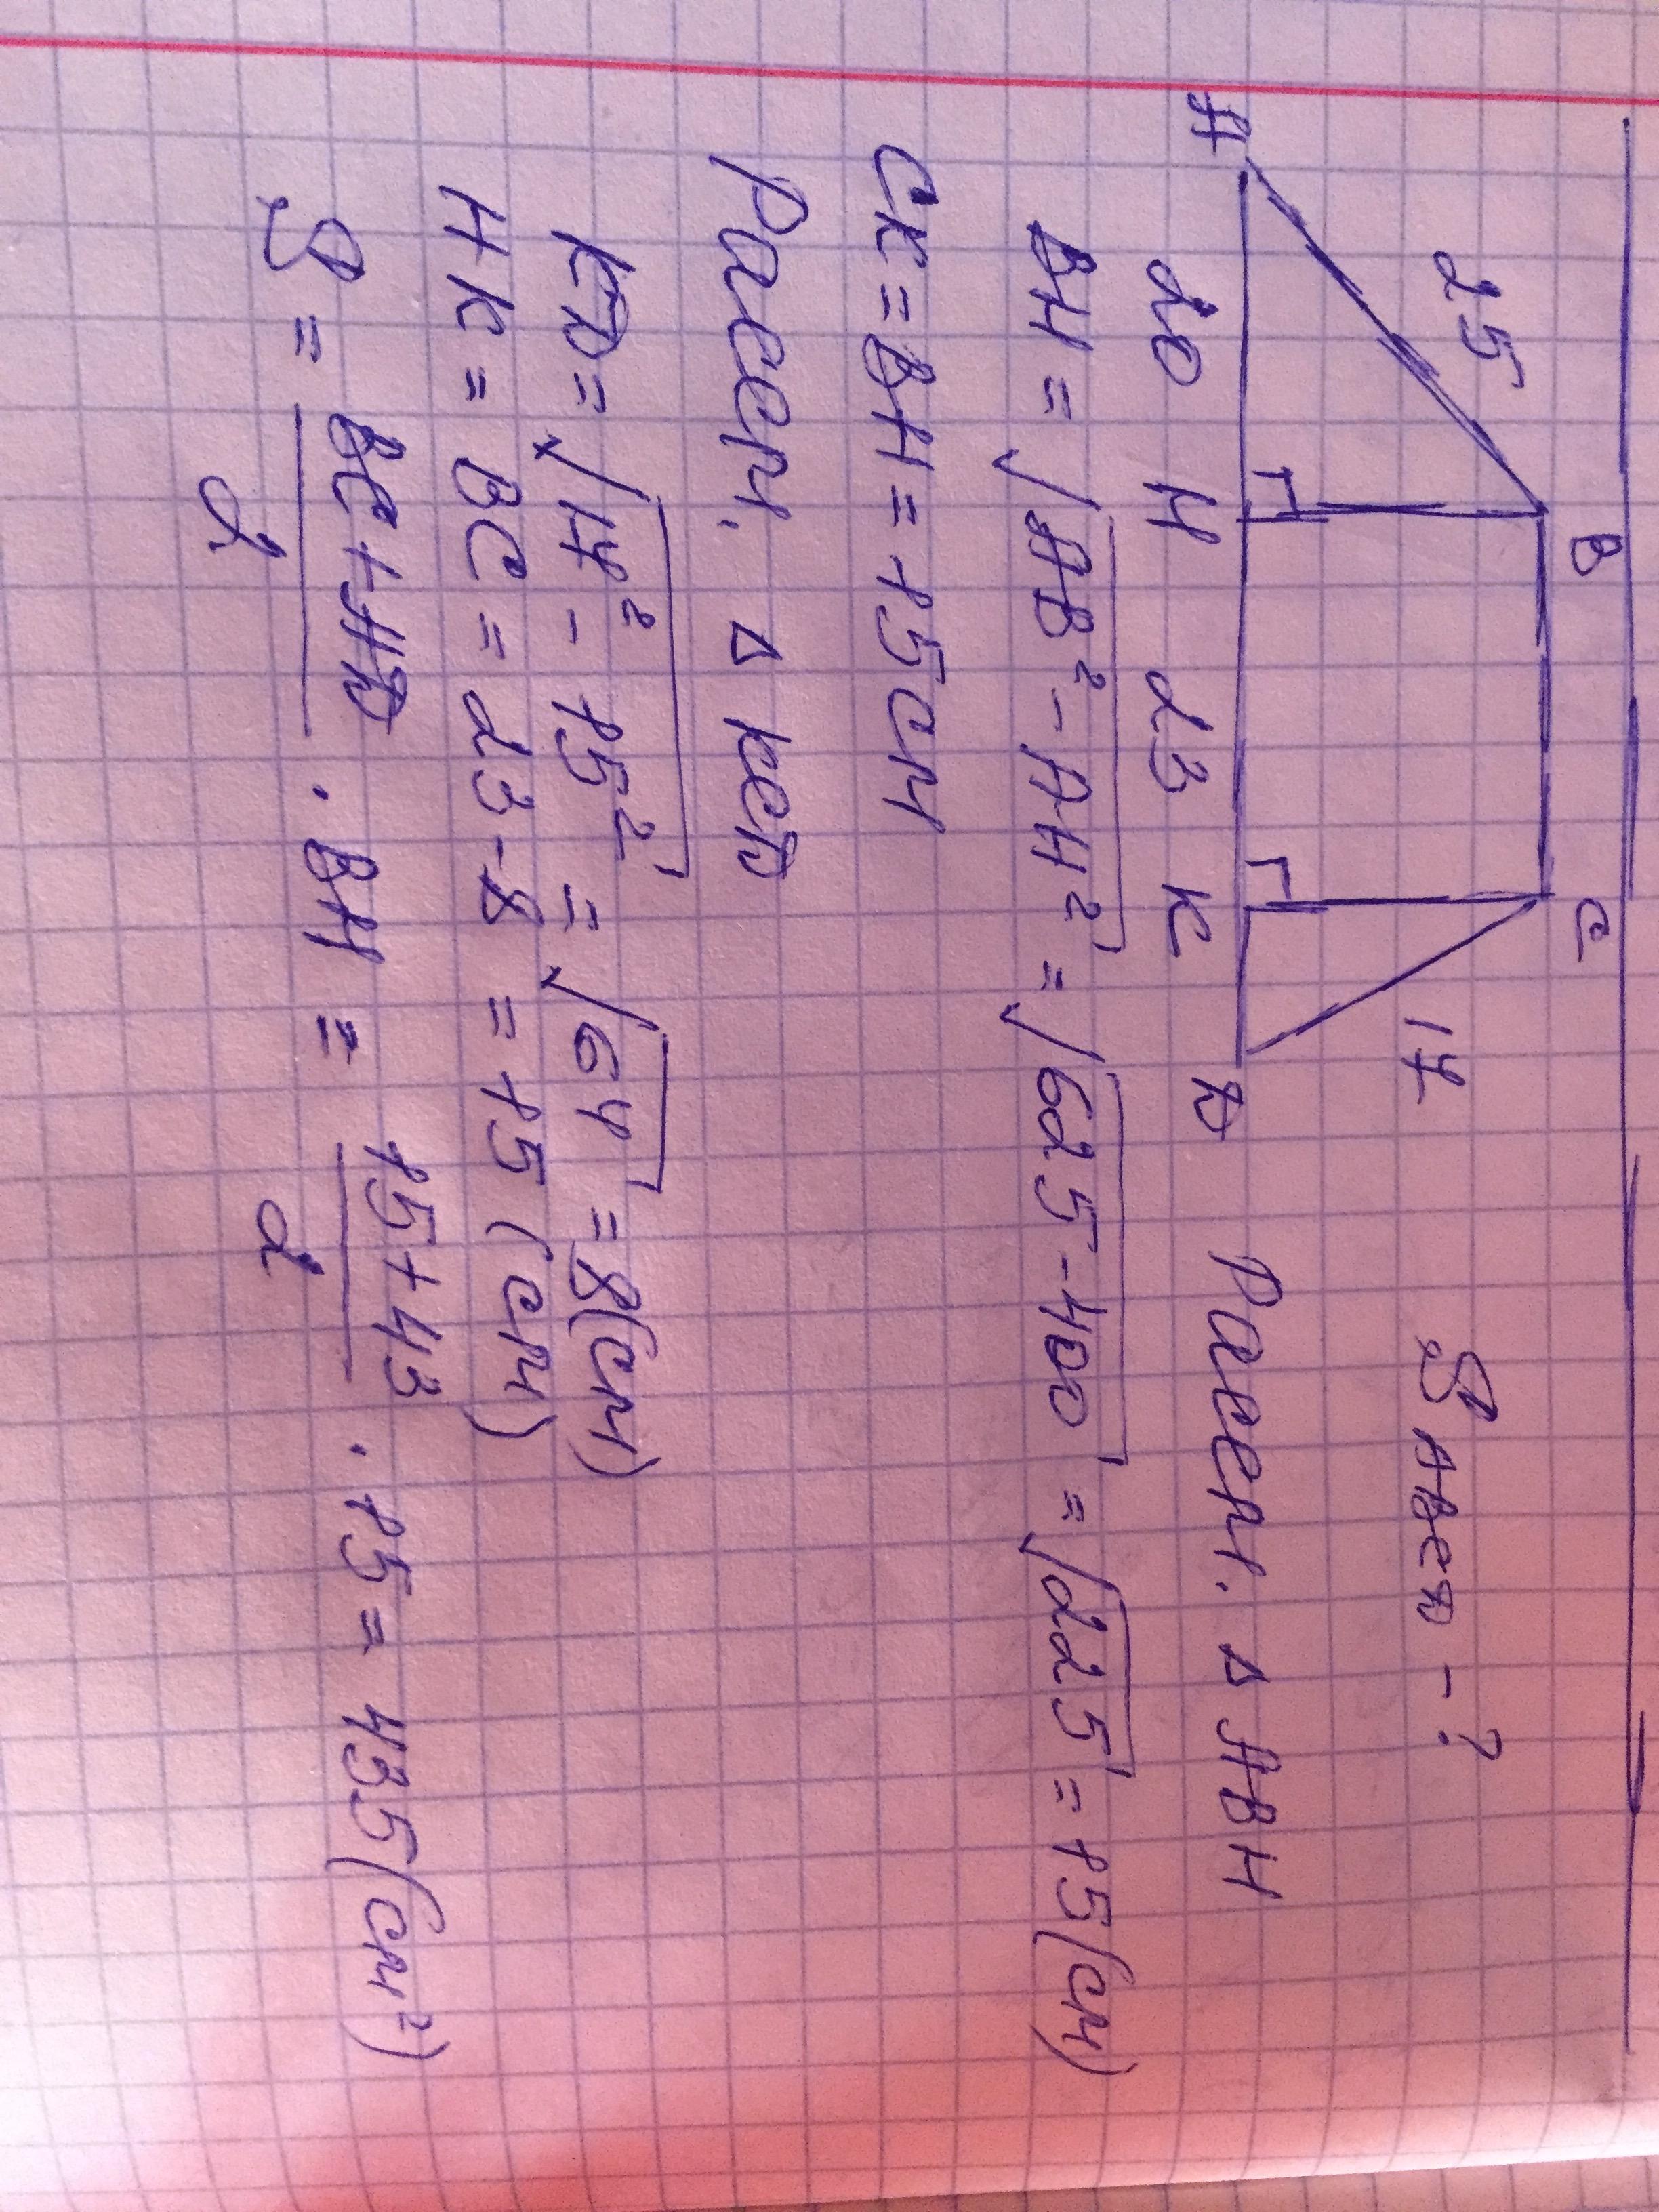 B C
25 17
S ABCD - ?
A D
20 H 23 K
Рассм. Δ ABH
BH = √AB² - AH² = √625 - 400 = √225 = 15 (см)
CK = BH = 15 см
Рассм. Δ KCD
KD = √17² - 15² = √64 = 8 (см)
HK = BC = 23 - 8 = 15 (см)
S = BC + AD / 2 · BH = 15 + 43 / 2 · 15 = 435 (см²)